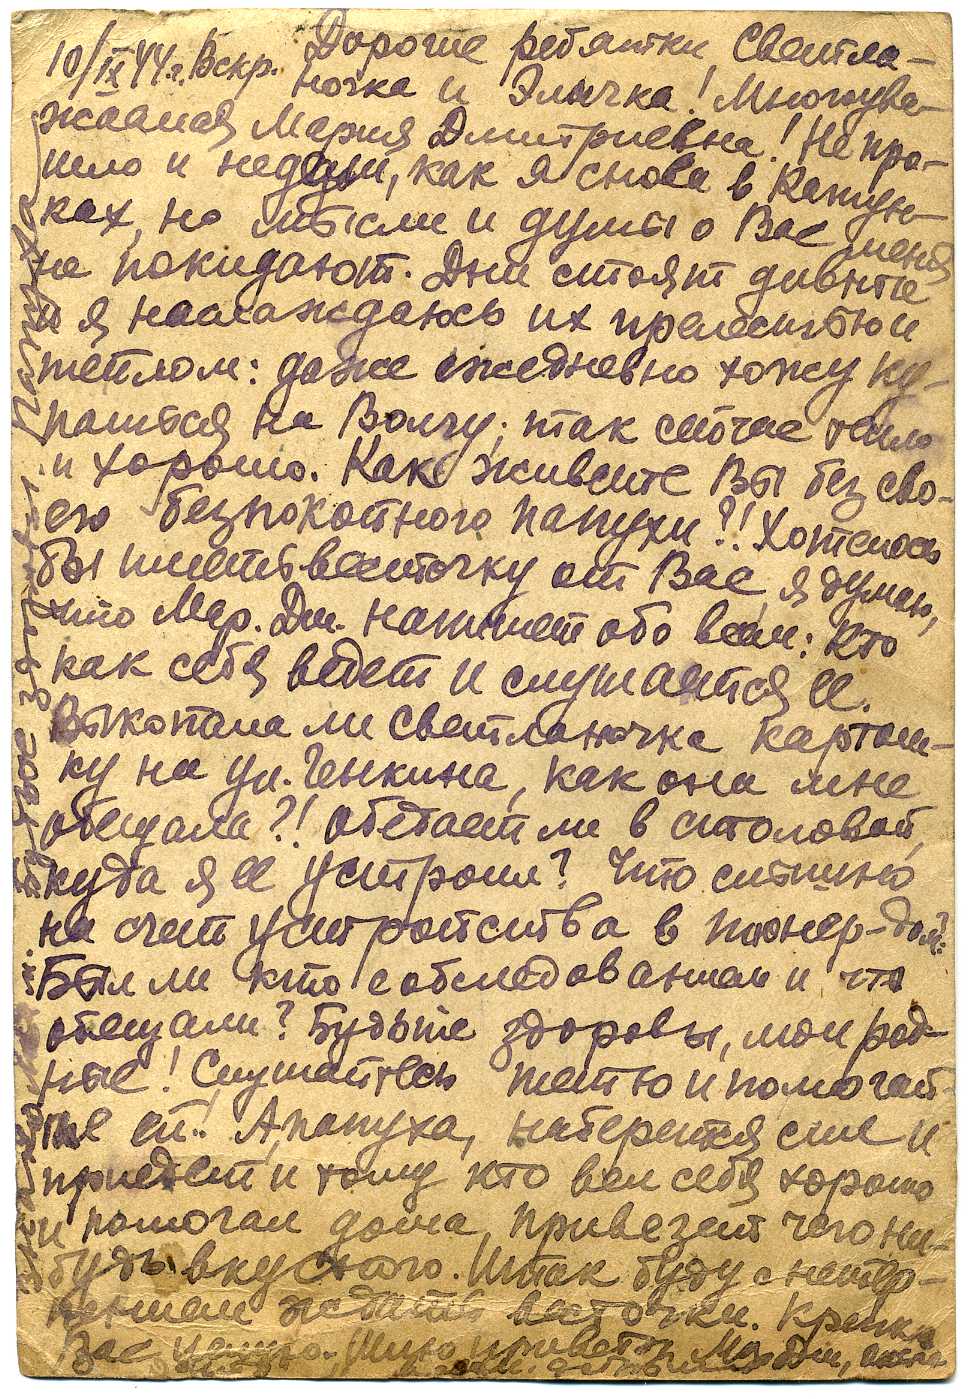 10/IX 44 г. Вскр. Дорогие ребятки, Светла-
ночка и Элычка! Многоува-
жаемая Мария Дмитриевна! Не про-
шло и недели, как я снова в Катун-
ках, но мысли и думы о Вас меня
не покидают. Дни стоят дивные
и я наслаждаюсь их прелестью и
теплом: даже ежедневно хожу ку-
паться на Волгу; так сейчас тепло
и хорошо. Как живете Вы без сво-
его безпокойного папухи?! Хотелось
бы иметь весточку от Вас, я думаю,
что Мар. Дм. напишет обо всем: кто
как себя ведет и слушается ее.
Выкопала ли Светланочка картош-
ку на ул. Генкина, как она мне
обещала?! Обедает ли в столовой,
куда я ее устроил? Что слышно
на счет устройства в пионер-дом?
Был ли кто с обследованием и что
обещали? Будьте здоровы, мои род-
ные! Слушайтесь тетю и помогай-
те ей! А, папуха, наберется сил и
приедет и тому кто вел себя хорошо
и помогал дома, привезет чего ни-
будь вкусного. Итак буду с нетер-
пением ждать весточки. Крепко
Вас целую. Шлю привет Мар. Дм,
Будьте здоровы. Папуха